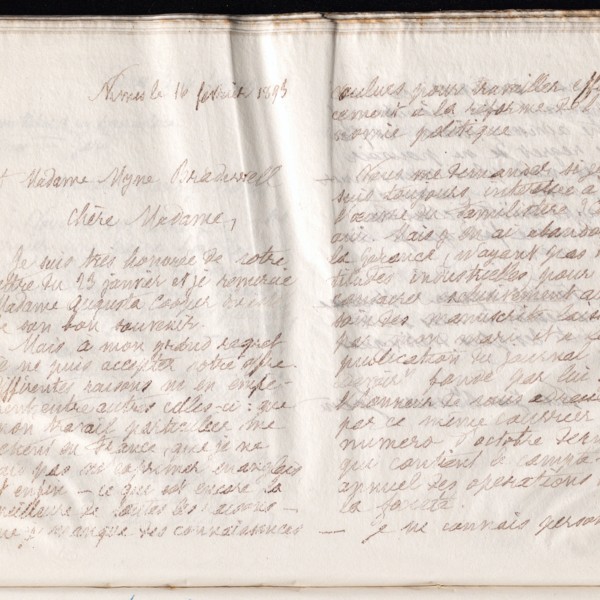 Nîmes le 16 février 1893
Madame Myra Bradwell
Chère Madame,
Je suis très honorée de votre
lettre du 23 janvier et je remercie
Madame Augusta Cooper
de son bon souvenir.
Mais à mon grand regret
je ne puis accepter votre offre.
Différentes raisons m'en empê-
chent entre autres celles-ci : que
mon travail particulier me
retient en France, que je ne
sais pas m'exprimer en anglais
et enfin — ce qui est encore la
meilleure de toutes les raisons —
que je manque des connaissances —
voulues pour travailler effi-
cacement à la réforme de l'
économie politique
Vous me demandez si je
suis toujours intéressée à
l'œuvre du familistère ?
oui. Mais j'en ai abandon
la gérance, n'ayant pas
industrielles pour
consacrer entièrement au
soin des manuscrits laissés
par mon mari et à la
publication du journal
fondé par lui.
l'honneur de vous adresser
par ce même courrier
numéro d'octobre dernier
qui contient le compte
annuel des opérations
la société.
— Je ne connais person